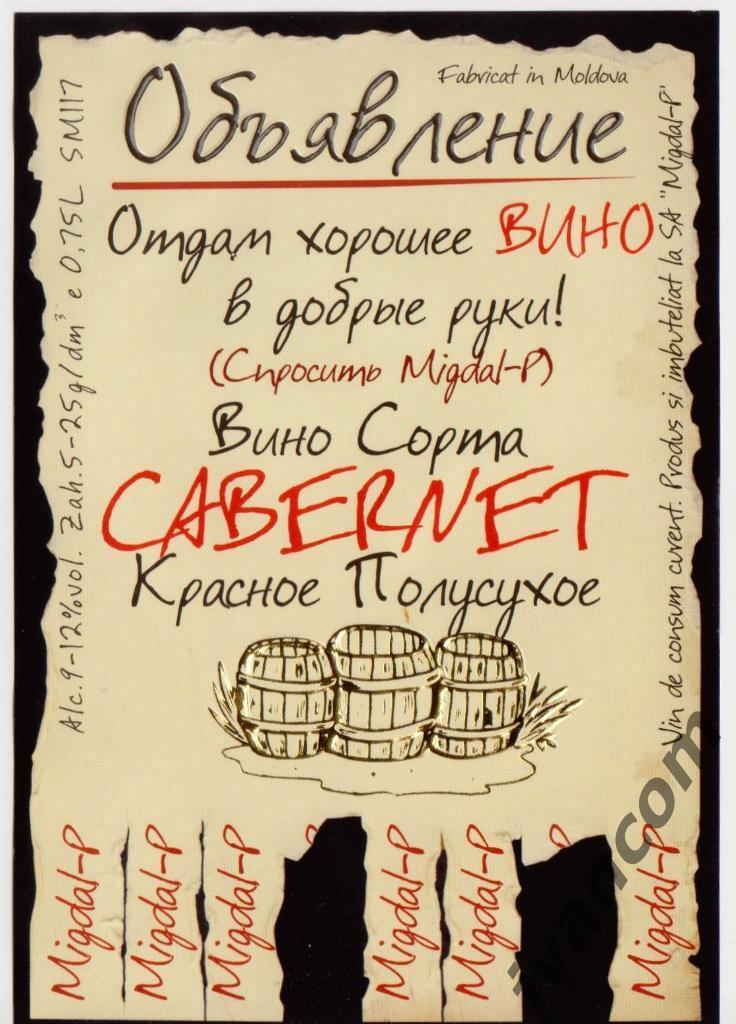 Fabricat in Moldova
Объявление
Отдам хорошее ВИНО
в добрые руки!
(Спросить Migdal-P)
Вино Сорта
CABERNET
Красное Полусухое
Alc.9-12%vol. Zah.5-25g/dm³ e 0,75L SM117
Vin de consum curent. Produs si imbuteliat la SA "Migdal-P"
Migdal-P
Migdal-P
Migdal-P
Migdal-P
Migdal-P
Migdal-P
jvancom